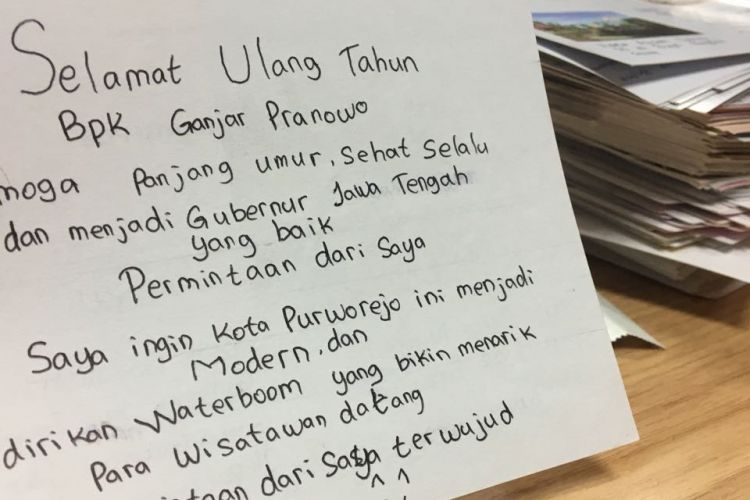 Selamat Ulang Tahun
Bpk Ganjar Pranowo
moga panjang umur, sehat selalu
dan menjadi Gubernur Jawa Tengah
yang baik
Permintaan dari saya
Saya ingin Kota Purworejo ini menjadi
Modern, dan
dirikan Waterboom yang bikin menarik
Para wisatawan datang
intaan dari saya terwujud
^ ^